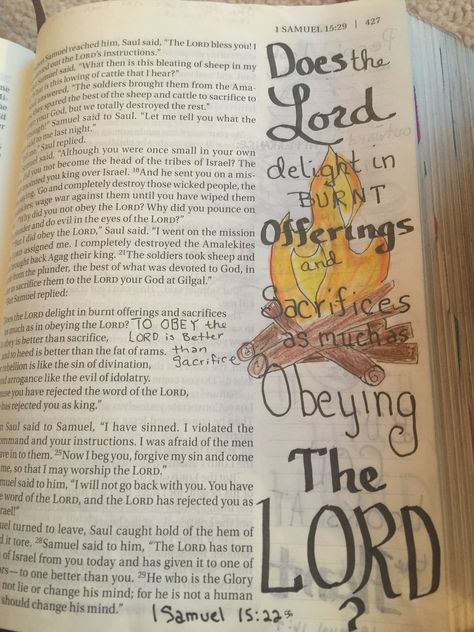 1 SAMUEL 15:29 | 427
Samuel reached him, Saul said, "The LORD bless you! I
out the LORD's instructions."
Samuel said, "What then is this bleating of sheep in my
is this lowing of cattle that I hear?"
answered, "The soldiers brought them from the Ama-
spared the best of the sheep and cattle to sacrifice to
your God, but we totally destroyed the rest."
Samuel said to Saul. "Let me tell you what the
me last night."
Saul replied.
said, "Although you were once small in your own
did you not become the head of the tribes of Israel? The
anointed you king over Israel. 18And he sent you on a mis-
'Go and completely destroy those wicked people, the
wage war against them until you have wiped them
Why did you not obey the LORD? Why did you pounce on
and do evil in the eyes of the LORD?"
I did obey the LORD," Saul said. "I went on the mission
LORD assigned me. I completely destroyed the Amalekites
brought back Agag their king. 21The soldiers took sheep and
from the plunder, the best of what was devoted to God, in
to sacrifice them to the LORD your God at Gilgal."
Samuel replied:
Does the LORD delight in burnt offerings and sacrifices
as much as in obeying the LORD? TO OBEY the
obey is better than sacrifice, LORD is Better
and to heed is better than the fat of rams. than
rebellion is like the sin of divination, Sacrifice
and arrogance like the evil of idolatry.
you have rejected the word of the LORD,
has rejected you as king."
Saul said to Samuel, "I have sinned. I violated the
command and your instructions. I was afraid of the men
in to them. 25Now I beg you, forgive my sin and come
me, so that I may worship the LORD."
Samuel said to him, "I will not go back with you. You have
word of the LORD, and the LORD has rejected you as
Israel!"
Samuel turned to leave, Saul caught hold of the hem of
it tore. 28Samuel said to him, "The LORD has torn
of Israel from you today and has given it to one of
—to one better than you. 29He who is the Glory
not lie or change his mind; for he is not a human
should change his mind."
1 Samuel 15:22
Does the
Lord
delight in
BURNT
Offerings
and
Sacrifices
as much as
Obeying
The
LORD
?